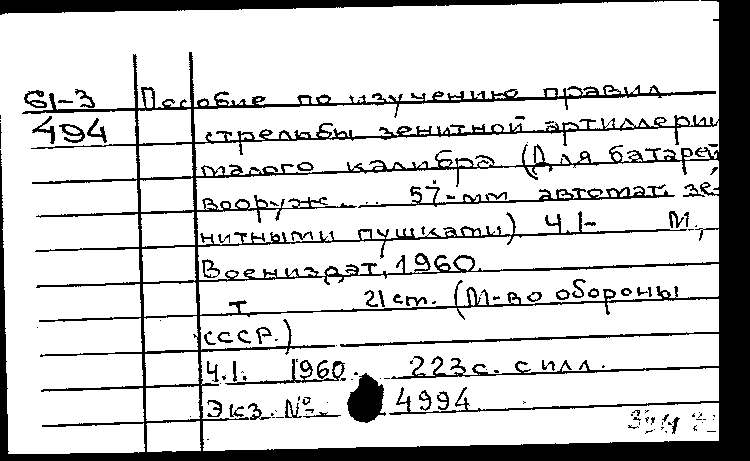 61-3 Пособие по изучению правил
494 стрельбы зенитной артиллерии
малого калибра (Для батарей
вооруж.... 57-мм автомат. зе-
нитными пушками) Ч.1- М.,
Воениздат, 1960.
т 21 см. (М-во обороны
СССР.)
Ч.1. 1960. 223с. с илл.
Экз. № 4994